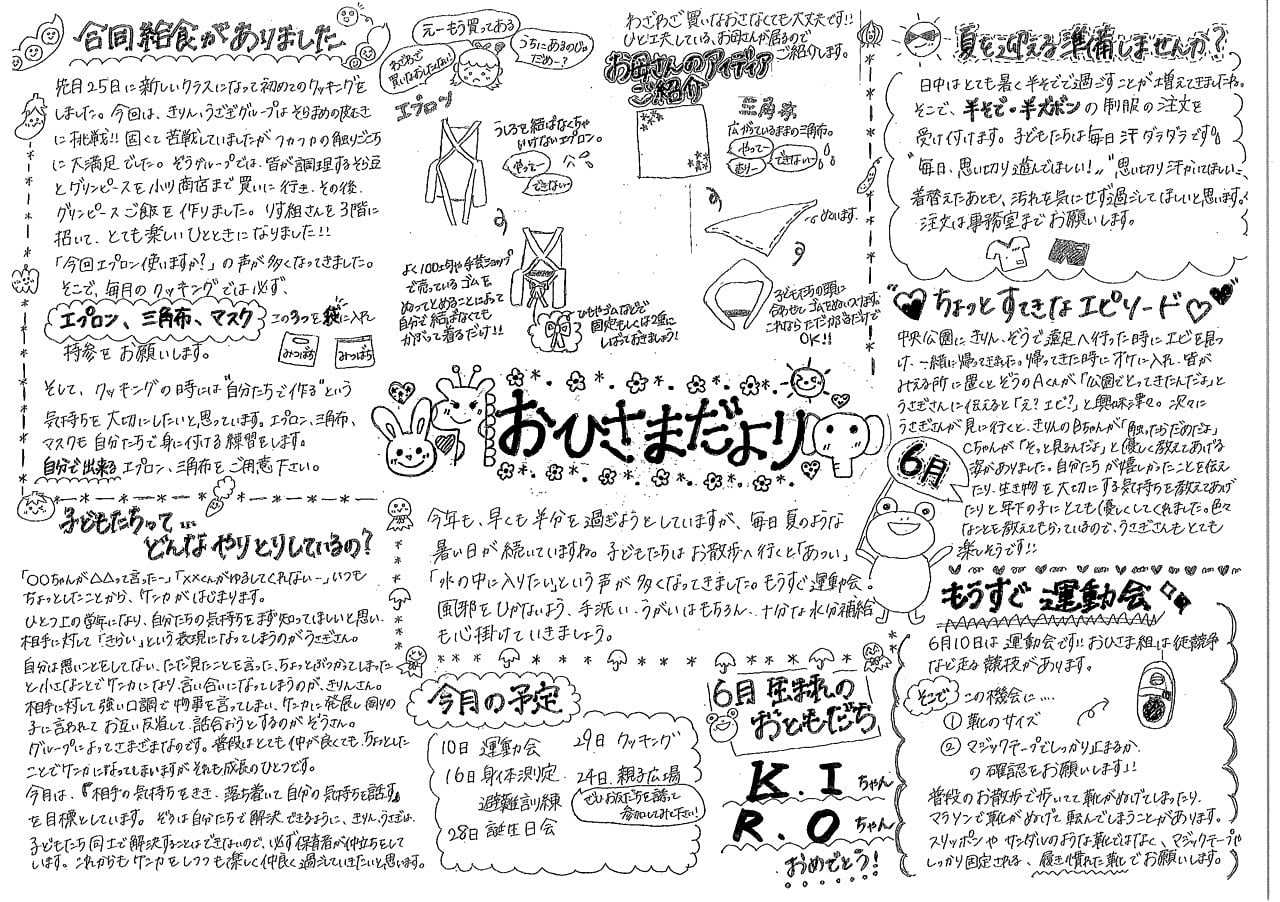 合同給食がありました
先月25日に新しいクラスになって初めてのクッキングを
しました。今回は、きりん、うさぎグループはそら豆の皮むき
に挑戦!! 固くて苦戦していましたがフカフカの触りごこち
に大満足でした。ぞうグループでは、皆が調理するそら豆
とグリンピースを小川商店まで買いに行き、その後、
グリンピースご飯を作りました。りす組さんを3階に
招いて、とても楽しいひとときになりました!!
「今回エプロン使いますか?」の声が多くなってきました。
そこで、毎月のクッキングでは必ず、
エプロン、三角布、マスク この3つを袋に入れ
持参をお願いします。
みつばち
みつばち
そして、クッキングの時には“自分たちで作る”という
気持ちを大切にしたいと思っています。エプロン、三角布、
マスクも自分たちで身に付ける練習をします。
自分で出来るエプロン、三角布をご用意下さい。
えーもう買ってある
わざわざ買いなおしたくない
うちにあるのじゃだめー?
わざわざ買いなおさなくても大丈夫です!!
ひと工夫している、お母さんが居るので
ご紹介します。
お母さんのアイディア
ご紹介
エプロン
うしろを結ばなくちゃ
いけないエプロン。
やってー
できないー
よく100均や手芸ショップ
で売っているゴムを
ぬってとめることによって
自分で結ばなくても
かがって着るだけ!!
ひもやゴムなどで
固定もしくは2重に
しばっておきましょう!
三角布
広がっているままの三角布。
やってー
できないー
ぬいます。
子どもたちの頭に
合わせてゴムをぬいつけます。
これならただかぶるだけで
OK!!
夏を迎える準備しませんか?
日中はとても暑く半そでで過ごすことが増えてきましたね。
そこで、半そで・半ズボンの制服の注文を
受け付けます。子どもたちは毎日汗ダラダラです。
“毎日、思い切り遊んでほしい!!”“思い切り汗かいてほしい”、
着替えたあとも、汚れを気にせず過ごしてほしいと思います。
注文は事務室までお願いします。
ちょっとすてきなエピソード
中央公園にきりん、ぞうで遠足へ行った時にエビを見つ
け、一緒に帰ってきました。帰ってきた時にオケに入れ、皆が
みえる所に置くとぞうのAくんが「公園でとってきたんだよ」と
うさぎさんに伝えると「え?エビ?」と興味津々。次々に
うさぎが見に行くと、きりんのBちゃんが「触ったらだめだよ」
Cちゃんが「そっと見るんだよ」と優しく教えてあげる
姿がありました。自分たちが嬉しかったことを伝え
たり、生き物を大切にする気持ちを教えてあげ
たりと年下の子にとても優しくしてくれました。色々
なことも教えてもらっているので、うさぎさんもとても
楽しそうです!!
おひさまだより
6月
今年も、早くも半分を過ぎようとしていますが、毎日夏のような
暑い日が続いていますね。子どもたちはお散歩へ行くと「あつい」
「水の中に入りたい」という声が多くなってきました。もうすぐ運動会。
風邪をひかないよう、手洗い、うがいはもちろん、十分な水分補給
も心掛けていきましょう。
子どもたちって…
どんなやりとりしているの?
「〇〇ちゃんが△△って言ったー」「××くんがゆるしてくれないー」いつも
ちょっとしたことから、ケンカがはじまります。
ひとつ上の学年になり、自分たちの気持ちをまず知ってほしいと思い、
相手に対して「きらい」という表現になってしまうのがうさぎさん。
自分は悪いことをしてない、ただ見たことを言った、ちょっとぶつかってしまった
と小さなことでケンカになり、言い合いになってしまうのが、きりんさん。
相手に対して強い口調で物事を言ってしまい、ケンカに発展し周りの
子に言われてお互い反省して、話合おうとするのがぞうさん。
グループによってさまざまなのです。普段はとても仲が良くても、ちょっとした
ことでケンカになってしまいますがそれも成長のひとつです。
今月は、『相手の気持ちをきき、落ち着いて自分の気持ちを話す』
を目標としています。ぞうは自分たちで解決できるように、きりん、うさぎは、
子どもたち同士で解決することはできないので、必ず保育者が仲立ちをして
います。これからもケンカをしつつも楽しく仲良く過ごしていきたいと思います。
今月の予定
10日 運動会
16日 身体測定
避難訓練
28日 誕生日会
29日 クッキング
24日 親子広場
ぜひお友だちを誘って
参加してみて下さい!
6月生まれの
おともだち
K.Iちゃん
R.Oちゃん
おめでとう!
もうすぐ運動会
6月10日は運動会です!! おひさま組は徒競争
など走る競技があります。
そこで この機会に….
① 靴のサイズ
② マジックテープでしっかり止まるか
の確認をお願いします!!
普段のお散歩で歩いてて靴がぬげてしまったり、
マラソンで靴がぬげて転んでしまうことがあります。
スリッポンやサンダルのような靴ではなく、マジックテープや
しっかり固定される、履き慣れた靴でお願いします。